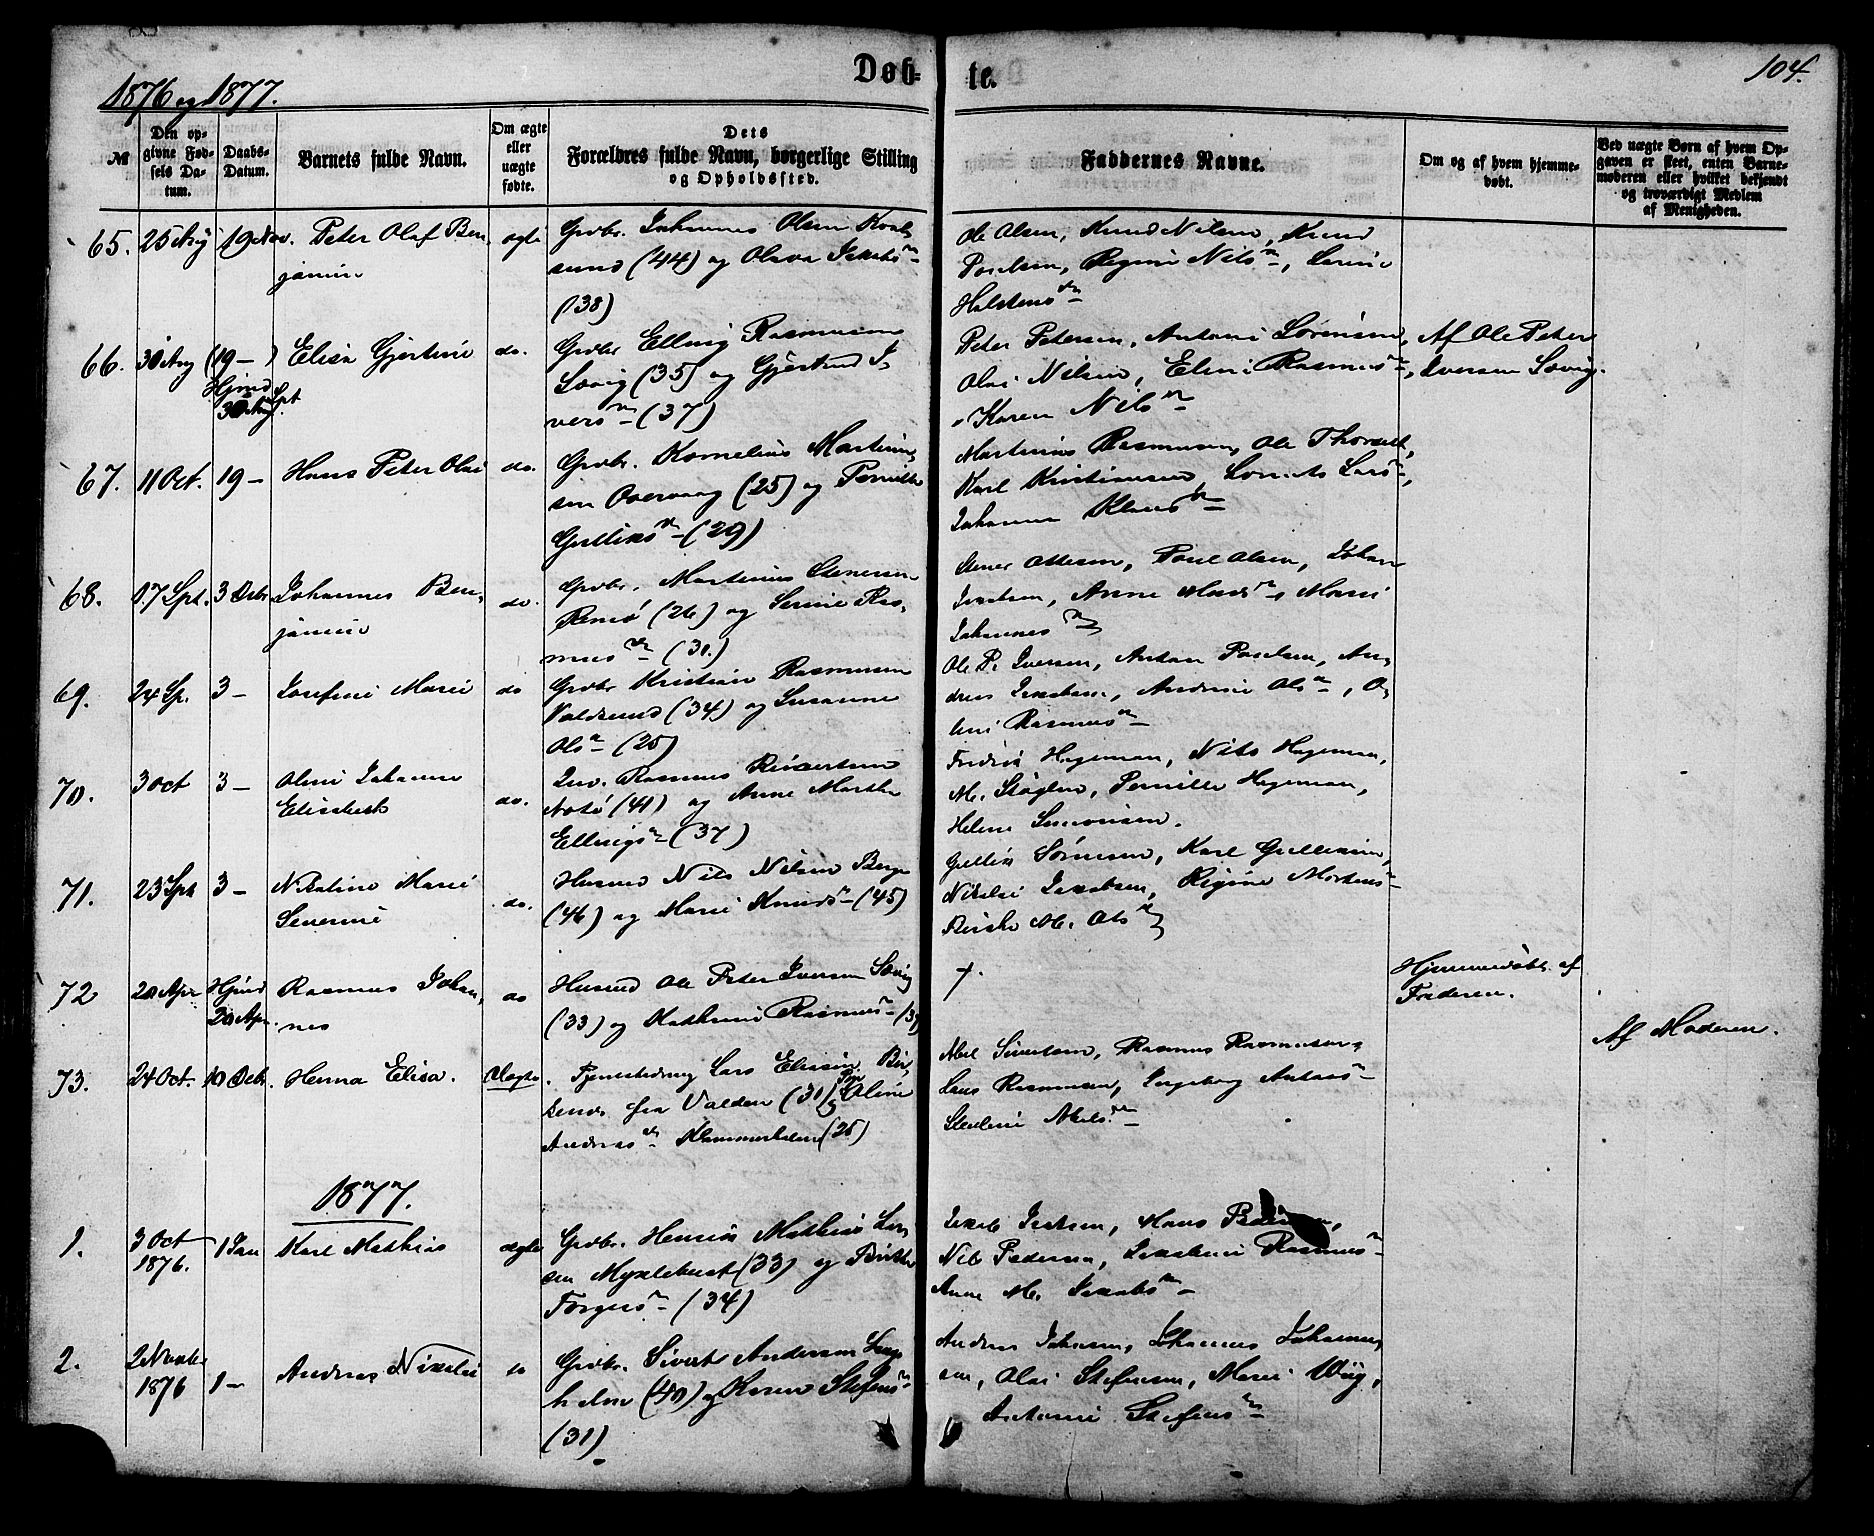 1876 og 1877.
Døb-
te.
104.
№
Den op-
givne Fød-
sels Da-
tum.
Daabs-
Datum.
Barnets fulde Navn.
Om ægte
eller
uægte
fødte.
Dets
Forældres fulde Navn, borgerlige Stilling
og Opholdssted.
Faddernes Navne.
Om og af hvem hjemme-
døbt.
Ved uægte Børn af hvem Op-
gaven er skeet, enten Barne-
moderen eller hvilket bekjendt
og troværdigt Medlem
af Menigheden.
65. 25 Aug 19 Nov. Peter Olaf Ben-
jamin
ægte
Grdbr. Johannes Olsen
sund (44) og Olava Jakobsdn
(38)
Ole Olsen, Knud Nilsen, Knud
Poulsen, Regine Nilsdn, Larine
Halstensdn
66. 30 Aug (19 - )
Hjmd
30 Aug.
Elisa Gjertine
do.
Grdbr Elling Rasmussen
Sævig (35) og Gjertrud I-
versdn (37)
Peter Petersen, Antoni Sørensen,
Olai Nilsen, Eline Rasmusdn,
Karen Nilsdn
Af Ole Peter
Iversen Sævig.
67. 11 Oct. 19 - Hans Peter Olai
do.
Grdbr. Kornelius Martinus-
sen Overvaag (25) og Pernille
Gulliksdn (29)
Martinus Rasmussen, Ole
Karl Kristiansen, Larsdn,
Johanna Klausdn
68. 17 Spt. 3 Decbr. Johannes Ben-
jamin
do.
Grdbr. Martinus Stenersen
Remø (26) og Serine Ras-
musdn (31.)
Stener Ottesen, Poul Olsen, Johan
Jakobsen, Anne Madsdn, Marie
Johannesdn
69. 24 Sp. 3 - Josefine Marie
do
Grdbr Kristian Rasmussen
Voldsund (34) og Susanne
Olsdn (25)
Ole P. Iversen, Anton Poulsen, An-
dreas Jakobsen, Andrine Olsdn, O-
line Rasmusdn
70. 3 Oct 3 - Oline Johanne
Elisabeth
do.
Inv. Rasmus
Notø (41) og Anne Marthe
Ellingsdn (37)
Fredrik Hageman, Nils Hageman,
M. Støylen, Pernille Hageman,
Helene Simonsen.
71. 23 Spt 3 - Nikoline Marie
Severine
do.
Husmd Nils Nilsen Berge
(46) og Marie Knudsdn (45)
Gullik Sørensen, Karl Gulliksen,
Nikolai Jakobsen, Regine Mortensdn
M. Olsdn
72 20 Apr Hjmd
20 Apr.
Rasmus Johan-
nes
do
Husmd Ole Peter Iversen Sævig
(33) og Kathrine Rasmusdn
†.
Hjemmedøbt af
Faderen.
73. 24 Oct. 10 Decbr. Henna Elisa.
Uægte.
Tjenestedreng Lars Eliasen
fra Volden (31) og Pige Oline
Andreasdn Klammerholm (25)
Abel Sivertsen, Rasmus Rasmussen,
Lars Rasmussen, Ingeborg Antonsdn
Abelsdn
Af Moderen.
1877.
1. 3 Oct
1876.
1 Jan Karl Mathias
ægte
Grdbr. Henrik Mathias Lar-
sen Myklebust (33) og Birthe
Torgersdn (34)
Jakob Isaksen, Hans Pedersen,
Nils Pedersen, Jakobine Rasmusdn
Anne M. Jakobsdn
2. 2 Novbr
1876
1 - Andreas Nikolai
do
Grdbr. Sivert Andersen
holm (40) og Karen Stefensdn
(31)
Anders Johansen, Johannes Johannes-
sen, Olai Stefensen, Marie Wiig,
Antonie Stefensdn